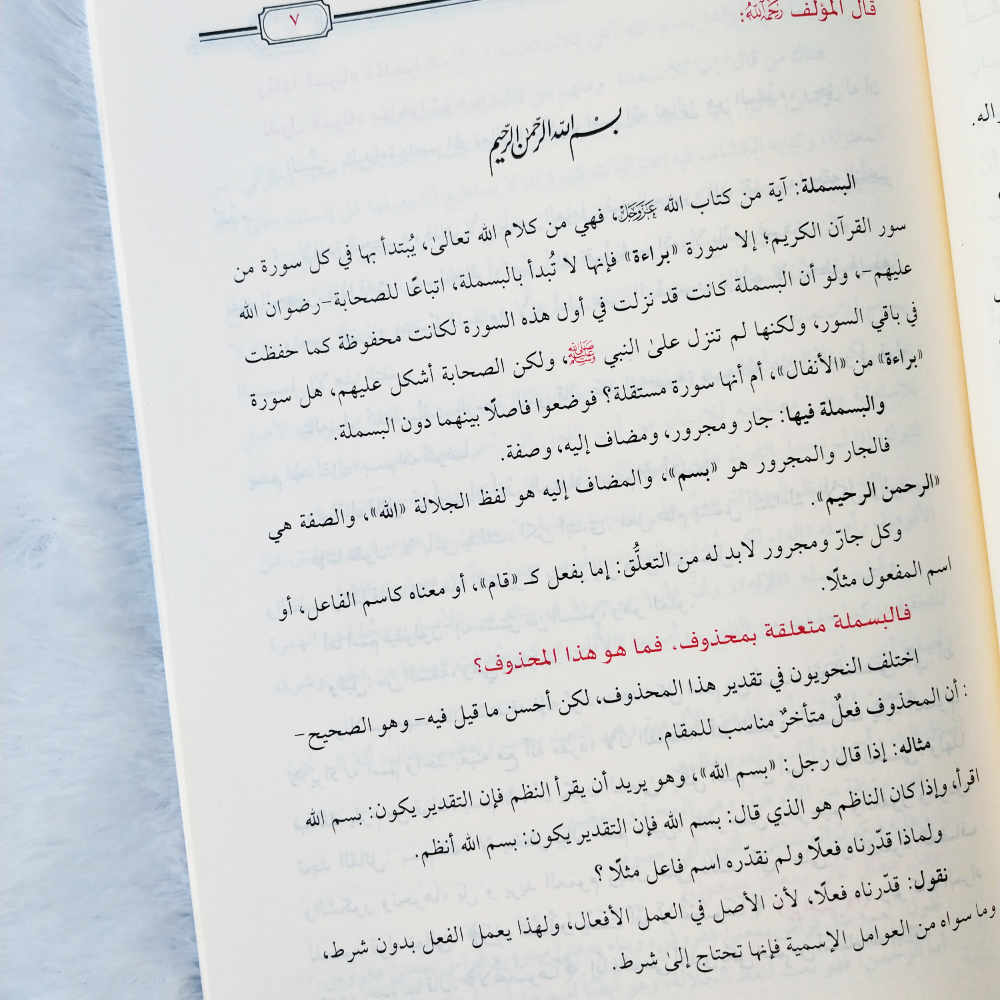 ٧
قال المؤلف رحمه الله:
بسم الله الرحمن الرحيم
البسملة: آية من كتاب الله عز وجل، فهي من كلام الله تعالىٰ، يُبتدأ بها في كل سورة من
سور القرآن الكريم؛ إلا سورة «براءة» فإنها لا تُبدأ بالبسملة، اتباعًا للصحابة-رضوان الله
عليهم-، ولو أن البسملة كانت قد نزلت في أول هذه السورة لكانت محفوظة كما حفظت
في باقي السور، ولكنها لم تنزل علىٰ النبي ﷺ، ولكن الصحابة أشكل عليهم، هل سورة
«براءة» من «الأنفال»، أم أنها سورة مستقلة؟ فوضعوا فاصلًا بينهما دون البسملة.
والبسملة فيها: جار ومجرور، ومضاف إليه، وصفة.
فالجار والمجرور هو «بسم»، والمضاف إليه هو لفظ الجلالة «الله»، والصفة هي
«الرحمن الرحيم».
وكل جارّ ومجرور لابد له من التعلُّق: إما بفعل كـ «قام»، أو معناه كاسم الفاعل، أو
اسم المفعول مثلًا.
فالبسملة متعلقة بمحذوف، فما هو هذا المحذوف؟
اختلف النحويون في تقدير هذا المحذوف، لكن أحسن ما قيل فيه- وهو الصحيح-
: أن المحذوف فعلٌ متأخرٌ مناسب للمقام.
مثاله: إذا قال رجل: «بسم الله»، وهو يريد أن يقرأ النظم فإن التقدير يكون: بسم الله
اقرأ، وإذا كان الناظم هو الذي قال: بسم الله فإن التقدير يكون: بسم الله أنظم.
ولماذا قدّرناه فعلًا ولم نقدّره اسم فاعل مثلًا ؟
نقول: قدّرناه فعلًا، لأن الأصل في العمل الأفعال، ولهذا يعمل الفعل بدون شرط،
وما سواه من العوامل الإسمية فإنها تحتاج إلىٰ شرط.